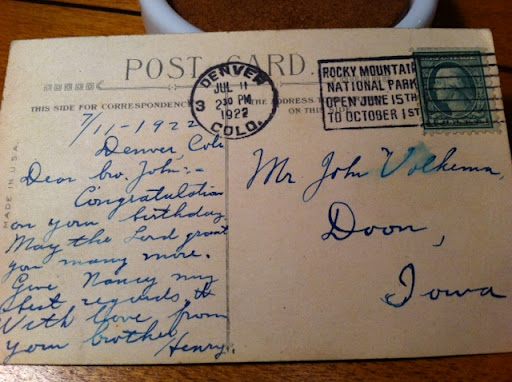 POST CARD.
THIS SIDE FOR CORRESPONDENCE
THE ADDRESS TO
ON THIS
MADE IN U.S.A.
DENVER
COLO.
3
JUL 11
230 PM
1922
ROCKY MOUNTAIN
NATIONAL PARK
OPEN JUNE 15TH
TO OCTOBER 1ST
7/11-1922
Denver, Colo
Dear bro. John:-
Congratulation
on your birthday.
May the Lord grant
you many more.
Give Nancy my
best regards, &
With love from
your brother
Henry.
Mr John Volkema,
Doon,
Iowa